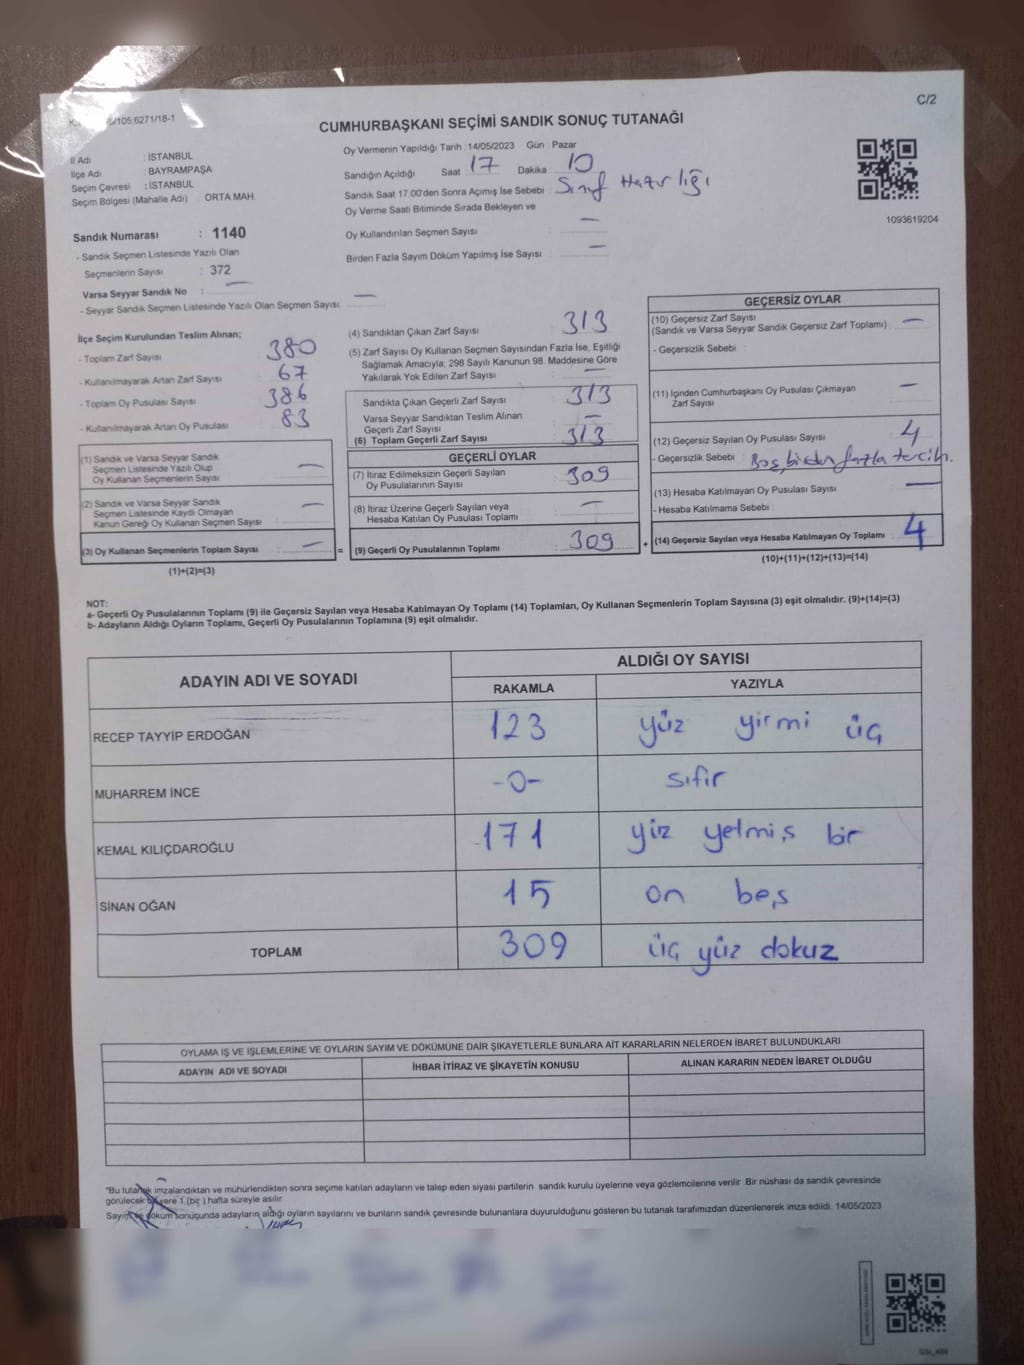 C/2
/105,6271/18-1
CUMHURBAŞKANI SEÇİMİ SANDIK SONUÇ TUTANAĞI
İl Adı : İSTANBUL
İlçe Adı : BAYRAMPAŞA
Seçim Çevresi : İSTANBUL
Seçim Bölgesi (Mahalle Adı) : ORTA MAH.
Oy Vermenin Yapıldığı Tarih :14/05/2023 Gün : Pazar
Sandığın Açıldığı Saat 17 Dakika 10
Sandık Saat 17.00'den Sonra Açımış İse Sebebi : Sınıf Hazırlığı
Oy Verme Saati Bitiminde Sırada Bekleyen ve
Oy Kullandırılan Seçmen Sayısı : —
Birden Fazla Sayım Döküm Yapılmış İse Sayısı : —
1093619204
Sandık Numarası : 1140
- Sandık Seçmen Listesinde Yazılı Olan
Seçmenlerin Sayısı : 372
Varsa Seyyar Sandık No : —
- Seyyar Sandık Seçmen Listesinde Yazılı Olan Seçmen Sayısı : —
İlçe Seçim Kurulundan Teslim Alınan;
- Toplam Zarf Sayısı : 380
- Kullanılmayarak Artan Zarf Sayısı : 67
- Toplam Oy Pusulası Sayısı : 386
- Kullanılmayarak Artan Oy Pusulası : 83
(1) Sandık ve Varsa Seyyar Sandık
Seçmen Listesinde Yazılı Olup
Oy Kullanan Seçmenlerin Sayısı : —
(2) Sandık ve Varsa Seyyar Sandık
Seçmen Listesinde Kayıtlı Olmayan
Kanun Gereği Oy Kullanan Seçmen Sayısı : —
(3) Oy Kullanan Seçmenlerin Toplam Sayısı : —
(1)+(2)=(3)
(4) Sandıktan Çıkan Zarf Sayısı : 313
(5) Zarf Sayısı Oy Kullanan Seçmen Sayısından Fazla İse, Eşitliği
Sağlamak Amacıyla; 298 Sayılı Kanunun 98. Maddesine Göre
Yakılarak Yok Edilen Zarf Sayısı : —
Sandıkta Çıkan Geçerli Zarf Sayısı : 313
Varsa Seyyar Sandıktan Teslim Alınan
Geçerli Zarf Sayısı : —
(6) Toplam Geçerli Zarf Sayısı : 313
GEÇERLİ OYLAR
(7) İtiraz Edilmeksizin Geçerli Sayılan
Oy Pusulalarının Sayısı : 309
(8) İtiraz Üzerine Geçerli Sayılan veya
Hesaba Katılan Oy Pusulası Toplamı : —
= (9) Geçerli Oy Pusulalarının Toplamı : 309
GEÇERSİZ OYLAR
(10) Geçersiz Zarf Sayısı
(Sandık ve Varsa Seyyar Sandık Geçersiz Zarf Toplamı) : —
- Geçersizlik Sebebi :
(11) İçinden Cumhurbaşkanı Oy Pusulası Çıkmayan
Zarf Sayısı : —
(12) Geçersiz Sayılan Oy Pusulası Sayısı : 4
- Geçersizlik Sebebi : Boş, birden fazla tercih.
(13) Hesaba Katılmayan Oy Pusulası Sayısı : —
- Hesaba Katılmama Sebebi :
+ (14) Geçersiz Sayılan veya Hesaba Katılmayan Oy Toplamı : 4
(10)+(11)+(12)+(13)=(14)
NOT:
a- Geçerli Oy Pusulalarının Toplamı (9) ile Geçersiz Sayılan veya Hesaba Katılmayan Oy Toplamı (14) Toplamları, Oy Kullanan Seçmenlerin Toplam Sayısına (3) eşit olmalıdır. (9)+(14)=(3)
b- Adayların Aldığı Oyların Toplamı, Geçerli Oy Pusulalarının Toplamına (9) eşit olmalıdır.
ADAYIN ADI VE SOYADI
ALDIĞI OY SAYISI
RAKAMLA YAZIYLA
RECEP TAYYİP ERDOĞAN 123 yüz yirmi üç
MUHARREM İNCE -0- sıfır
KEMAL KILIÇDAROĞLU 171 yüz yetmiş bir
SİNAN OĞAN 15 on beş
TOPLAM 309 üç yüz dokuz
OYLAMA İŞ VE İŞLEMLERİNE VE OYLARIN SAYIM VE DÖKÜMÜNE DAİR ŞİKAYETLERLE BUNLARA AİT KARARLARIN NELERDEN İBARET BULUNDUKLARI
ADAYIN ADI VE SOYADI İHBAR İTİRAZ VE ŞİKAYETİN KONUSU ALINAN KARARIN NEDEN İBARET OLDUĞU
*Bu tutanak imzalandıktan ve mühürlendikten sonra seçime katılan adayların ve talep eden siyasi partilerin sandık kurulu üyelerine veya gözlemcilerine verilir. Bir nüshası da sandık çevresinde
görülecek bir yere 1 (bir) hafta süreyle asılır.
Sayım ve döküm sonucunda adayların aldığı oyların sayılarını ve bunların sandık çevresinde bulunanlara duyurulduğunu gösteren bu tutanak tarafımızdan düzenlenerek imza edildi. 14/05/2023